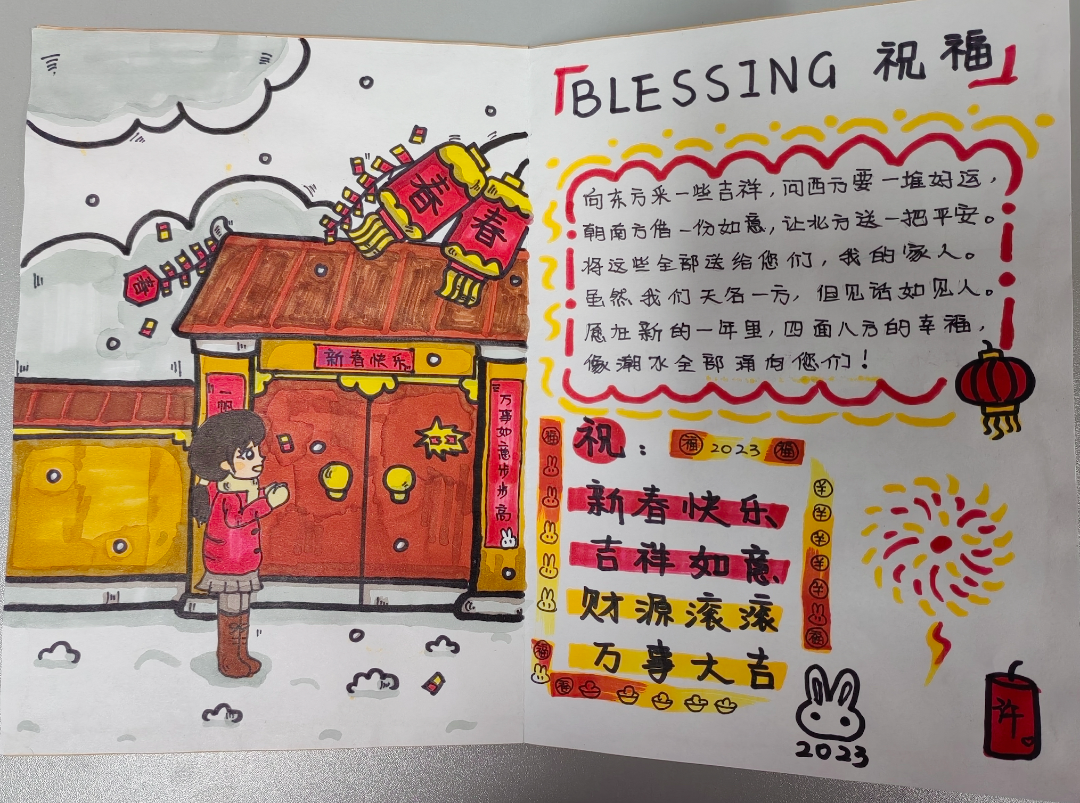 春
春
春
新春快乐
一帆
万事如意步步高
「BLESSING 祝福」
向东方采一些吉祥,问西方要一堆好运,
朝南方借一份如意,让北方送一把平安。
将这些全部送给您们,我的家人。
虽然我们天各一方,但见话如见人。
愿在新的一年里,四面八方的幸福,
像潮水全部涌向您们!
祝:
福 2023 福
新春快乐
吉祥如意
财源滚滚
万事大吉
福
福
福
福
2023
许